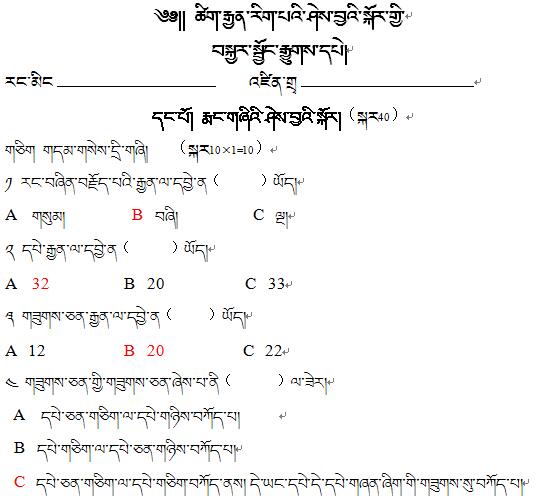 ༄༅།། ཚིག་རྒྱན་རིག་པའི་ཤེས་བྱའི་སྐོར་གྱི་
བསྐྱར་སྦྱོང་རྒྱུགས་དཔེ།
རང་མིང་ འཛིན་གྲྭ
དང་པོ། རྨང་གཞིའི་ཤེས་བྱའི་སྐོར། （སྐར40）
གཅིག གདམ་གསེས་དྲི་གཞི། （སྐར10×1=10）
༡ རང་བཞིན་བརྗོད་པའི་རྒྱན་ལ་དབྱེ་ན（ ）ཡོད།
A གསུམ། B བཞི། C ལྔ།
༢ དཔེ་རྒྱན་ལ་དབྱེ་ན（ ）ཡོད།
A 32 B 20 C 33
༣ གཟུགས་ཅན་རྒྱན་ལ་དབྱེ་ན（ ）ཡོད།
A 12 B 20 C 22
༤ གཟུགས་ཅན་གྱི་གཟུགས་ཅན་ཞེས་པ་ནི（ ）ལ་ཟེར།
A དཔེ་ཅན་གཅིག་ལ་དཔེ་གཉིས་བཀོད་པ།
B དཔེ་གཅིག་ལ་དཔེ་ཅན་གཉིས་བཀོད་པ།
C དཔེ་ཅན་གཅིག་ལ་དཔེ་གཅིག་བཀོད་ནས། དེ་ཡང་དཔེ་དེ་དཔེ་གཞན་ཞིག་གི་གཟུགས་སུ་བཀོད་པ།